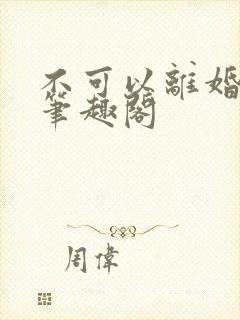 不可以離婚
筆趣閣
周偉